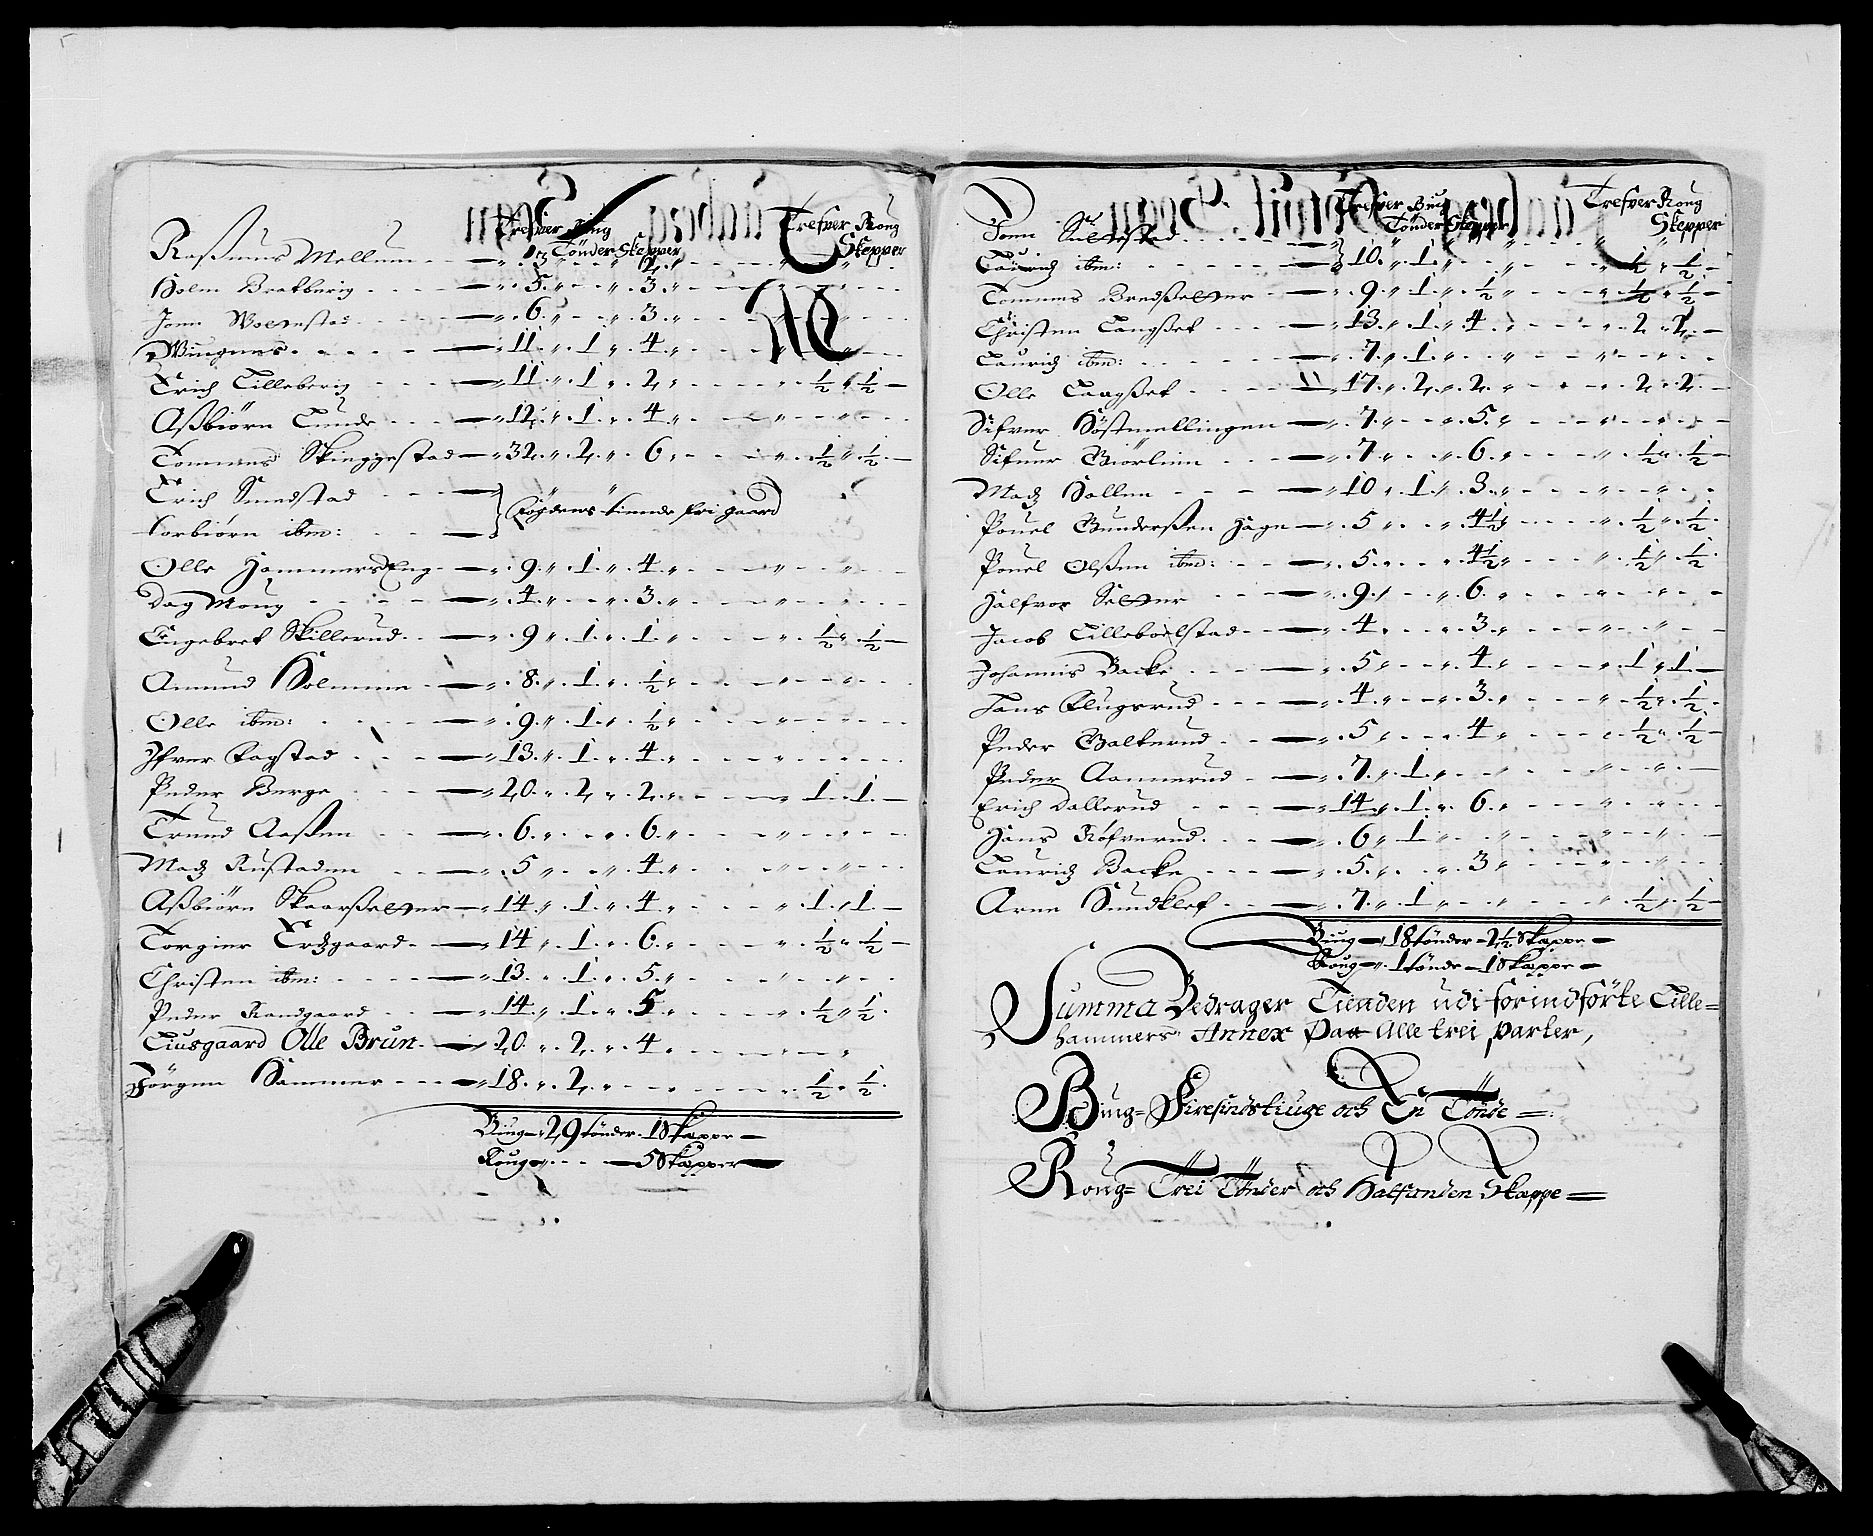 Trefver Biug Tönder Skepper Trefver Roug Skepper
Raßmus Mellum 3 2
Holm Brekberig 5 3
Jonn Wolenstad 6 3
Wingnes 11 1 4
Erich Lilleberig 11 1 2 ½ ½
Aßbiörn Lunde 12 1 4
Tommes Skieggestad 32 2 6 ½ ½
Erich Smedstad
Torbiörn ibm: tiende fri gaard
Olle HammersEng 9 1 4
Dag Moug 4 3
Engebret Skillerud 9 1 1 ½ ½
Amund Holmme 8 1 ½
Olle ibm: 9 1 ½
Ifver Rogstad 13 1 4
Peder Berge 20 2 2 1 1
Trund Aaßen 6 6
Madz Rustaden 5 4
Aßbiörn Skaarßetter 14 1 4 1 1
Torgier 14 1 6 ½ ½
Christen ibm: 13 1 5
Peder Randgaard 14 1 5 ½ ½
Liusgaard Olle Brun 20 2 4
Jörgen Hammer 18 2 ½ ½
Biug 29 tönder 1 Skeppe
Roug 5 Skepper
Trefver Biug Tönder Skepper Trefver Roug Skepper
Jonn Sulhestad
Lauridz ibm: 10 1 ½ ½
Tommes Bredßetter 9 1 ½ ½ ½
Christen Langßet 13 1 4 2 2
Lauridz ibm: 7 1
Olle Laagßet 17 2 2 2 2
Sifver Höstmellingen 7 5
Sifuer Biörlien 7 6 ½ ½
Madz Hollen 10 1 3
Pouel Gunderßen Hage 5 4½ ½ ½
Pouel Olßen ibm: 5 4½ ½ ½
Halfvor Setter 9 6
Jacob Lilleboelstad 4 3
Johannis Backe 5 4 1 1
Hans Flugsrud 4 3 ½ ½
Peder Balkerud 5 4 ½ ½
Peder Aannerud 7 1
Erich Dallerud 14 1 6
Hans Röfverud 6 1
Lauridz Backe 5 3
Arne Sundklef 7 1 ½ ½
Biug 18 tönder 2½ Skeppe
Roug 1 tönde 1 Skeppe
Summa Bedrager Tienden udi forindförte Lille=
hammers Annex Paa Alle trei parter,
Biug= Firesindstiuge och En Tönde
Roug= Trei Tönder och Halfanden Skeppe